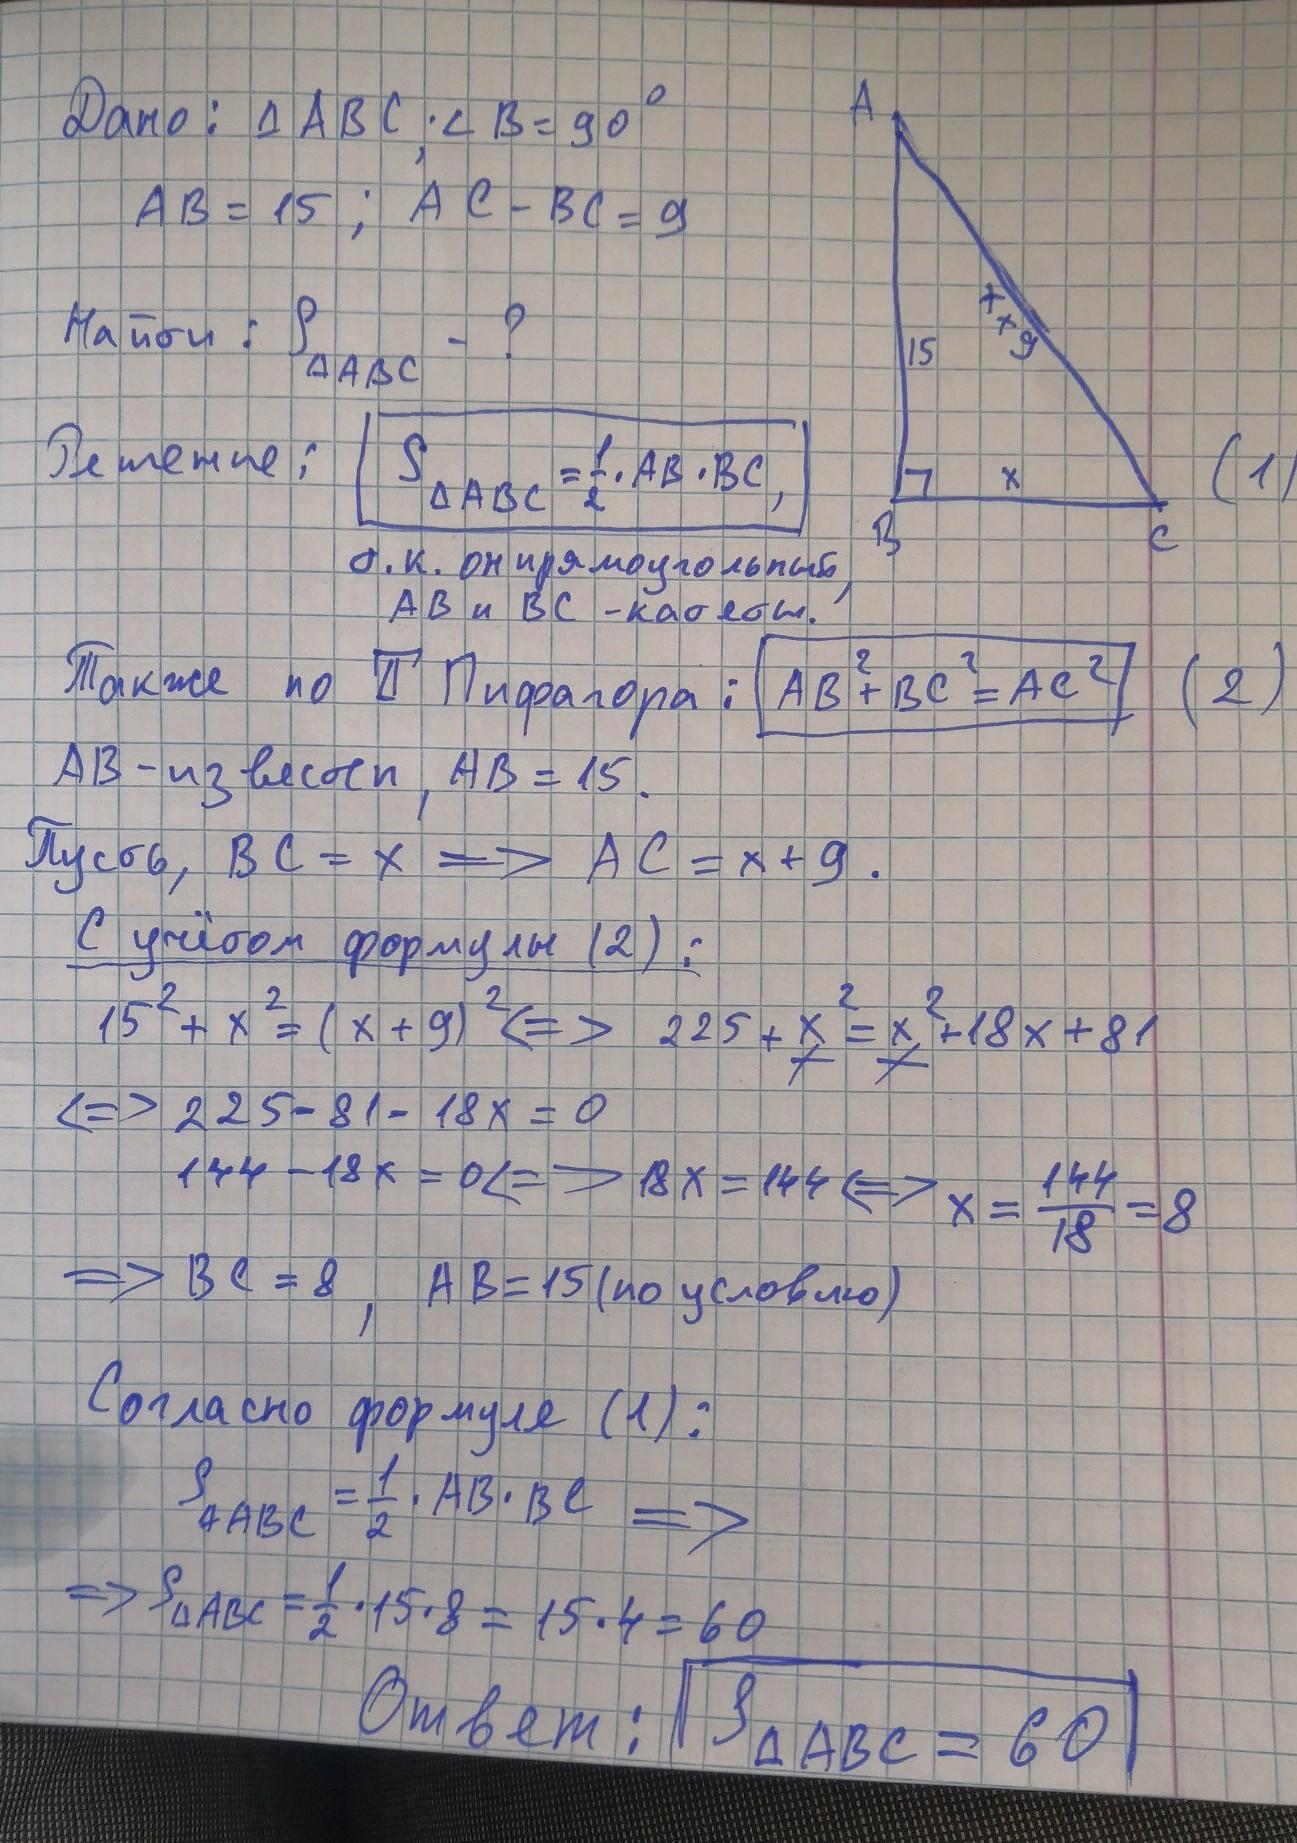 Дано: △ABC, ∠B=90°
AB = 15; AC - BC = 9
Найти: S△ABC - ?
A
15
x+9
x
B
C
Решение: S△ABC = 1/2 · AB · BC, (1)
т.к. он прямоугольный,
AB и BC - катеты.
Также по Т Пифагора: AB²+BC²=AC² (2)
AB - известен, AB = 15.
Пусть, BC = x => AC = x + 9.
С учётом формулы (2):
15² + x² = (x+9)² <=> 225 + x² = x² + 18x + 81
<=> 225 - 81 - 18x = 0
144 - 18x = 0 <=> 18x = 144 <=> x = 144/18 = 8
=> BC = 8, AB = 15 (по условию)
Согласно формуле (1):
S△ABC = 1/2 · AB · BC =>
=> S△ABC = 1/2 · 15 · 8 = 15 · 4 = 60
Ответ: S△ABC = 60